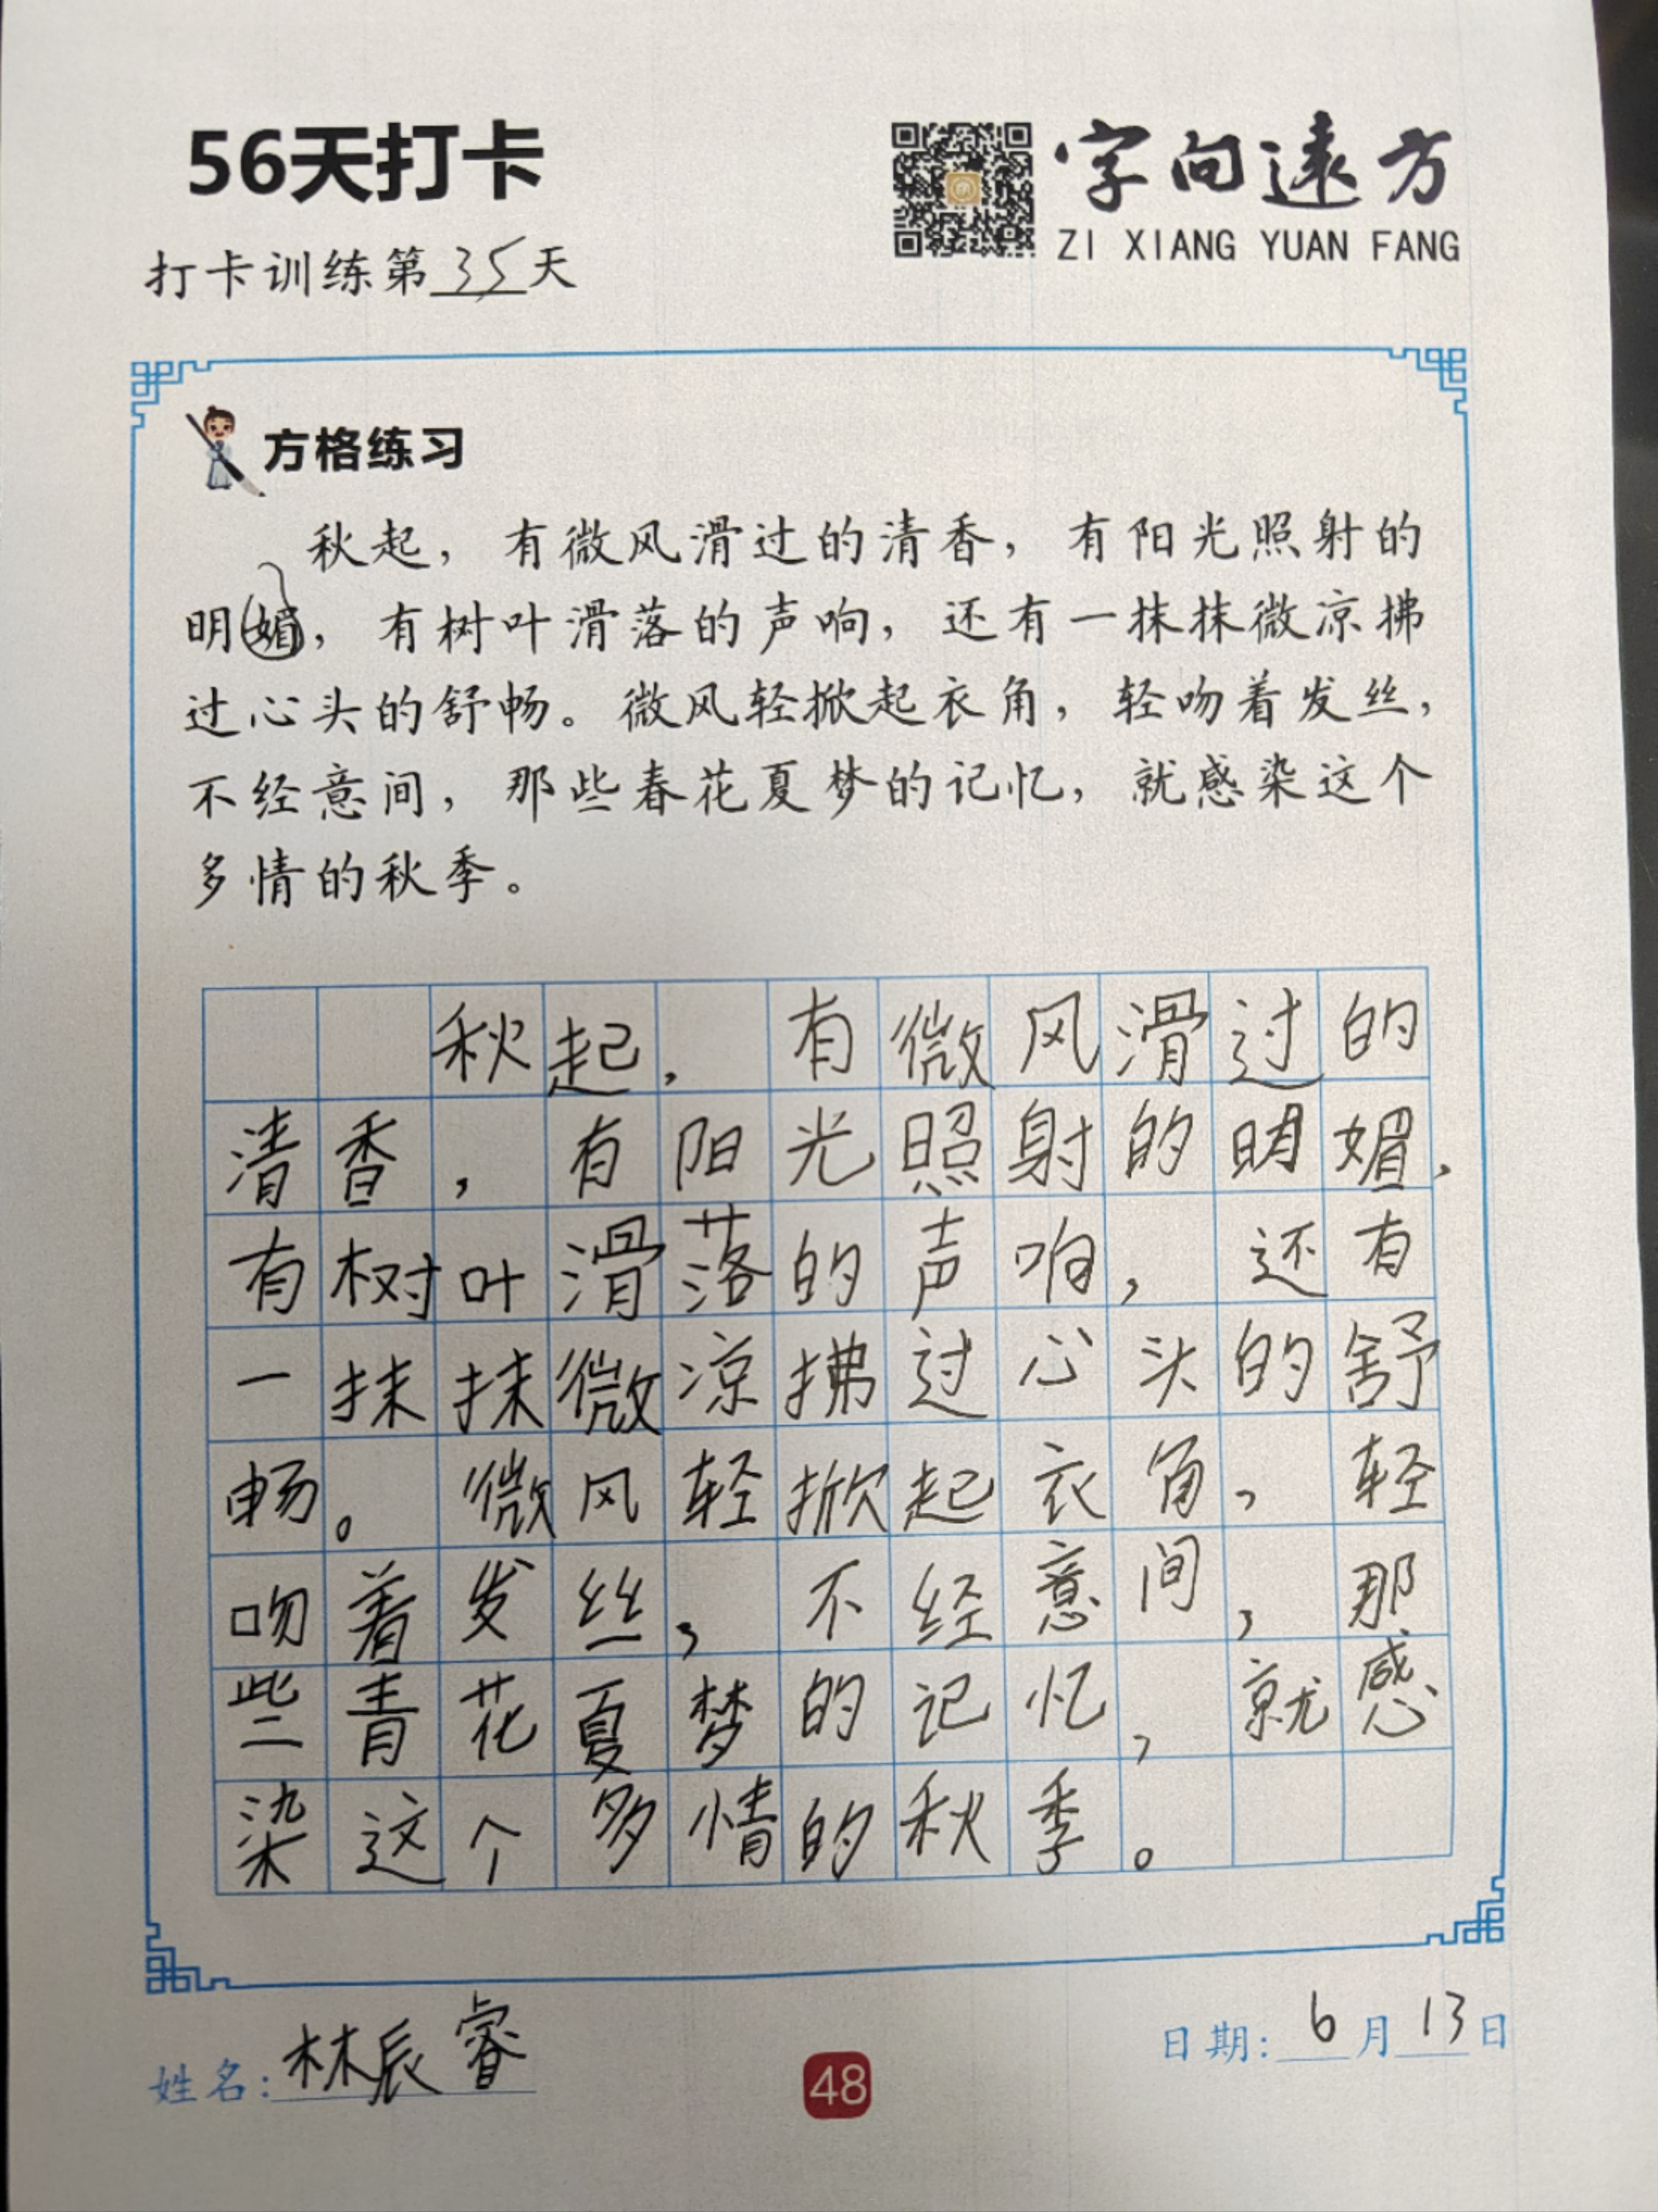 56天打卡
字向遠方
ZI XIANG YUAN FANG
打卡训练第35天
方格练习
秋起，有微风滑过的清香，有阳光照射的
明媚，有树叶滑落的声响，还有一抹抹微凉拂
过心头的舒畅。微风轻掀起衣角，轻吻着发丝，
不经意间，那些春花夏梦的记忆，就感染这个
多情的秋季。
秋起，有微风滑过的
清香，有阳光照射的明媚，
有树叶滑落的声响，还有
一抹抹微凉拂过心头的舒
畅。微风轻掀起衣角，轻
吻着发丝，不经意间，那
些青花夏梦的记忆，就感
染这个多情的秋季。
姓名：林辰睿
48
日期：6月13日